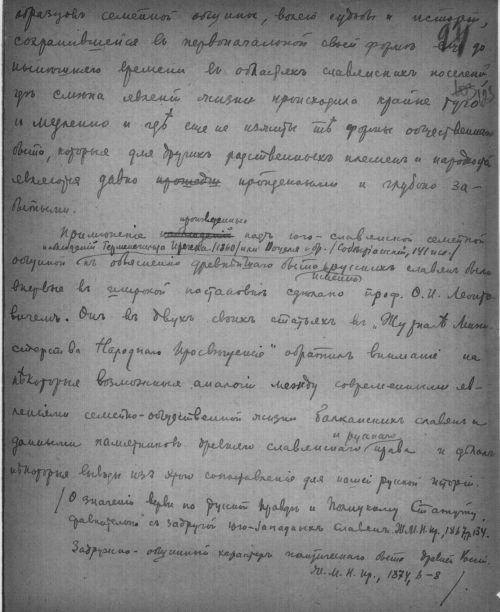 образцовъ семейной общины, всею судьбою и исторіи,
сохранившейся въ первоначальной своей формѣ до
нынѣшняго времени въ областяхъ славянскихъ поселеній
гдѣ смѣна явленій жизни происходила крайне туго
и медленно и гдѣ еще не изжиты тѣ формы общественнаго
быта, которыя для другихъ родственныхъ племенъ и народовъ
являются давно пройденными и глубоко за-
бытыми.
произведенныхъ
Примѣненіе надъ юго-славянской семейной
общиной къ объясненію древнѣйшаго быта русскихъ славянъ было
впервые въ широкой постановкѣ сдѣлано проф. Ѳ. И. Леонто-
вичемъ. Онъ въ двухъ своихъ статьяхъ въ „Журналѣ Мини-
стерства Народнаго Просвѣщенія" обратилъ вниманіе на
нѣкоторыя возможныя аналогіи между современными яв-
леніями семейно-общественной жизни балканскихъ славянъ и
и русскаго
данными памятниковъ древняго славянскаго права и дѣлалъ
нѣкоторые выводы изъ этого сопоставленія для нашей русской исторіи.
/ О значеніи верви по Русской Правдѣ и Полицкому Статуту,
сравнительно съ задругой юго-западныхъ славянъ. Ж.М.Н.Пр., 1867,
Задружно-общинный характеръ политическаго быта древней Россіи.
Ж. М. Н. Пр., 1874, 6-8 /